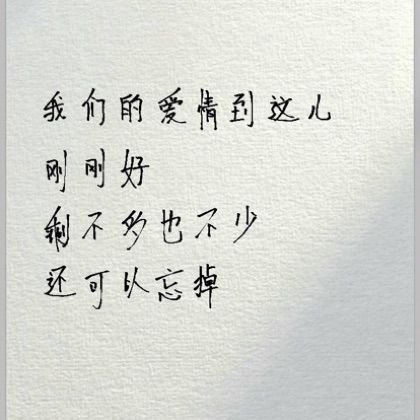 我们的爱情到这儿
刚刚好
剩不多也不少
还可以忘掉